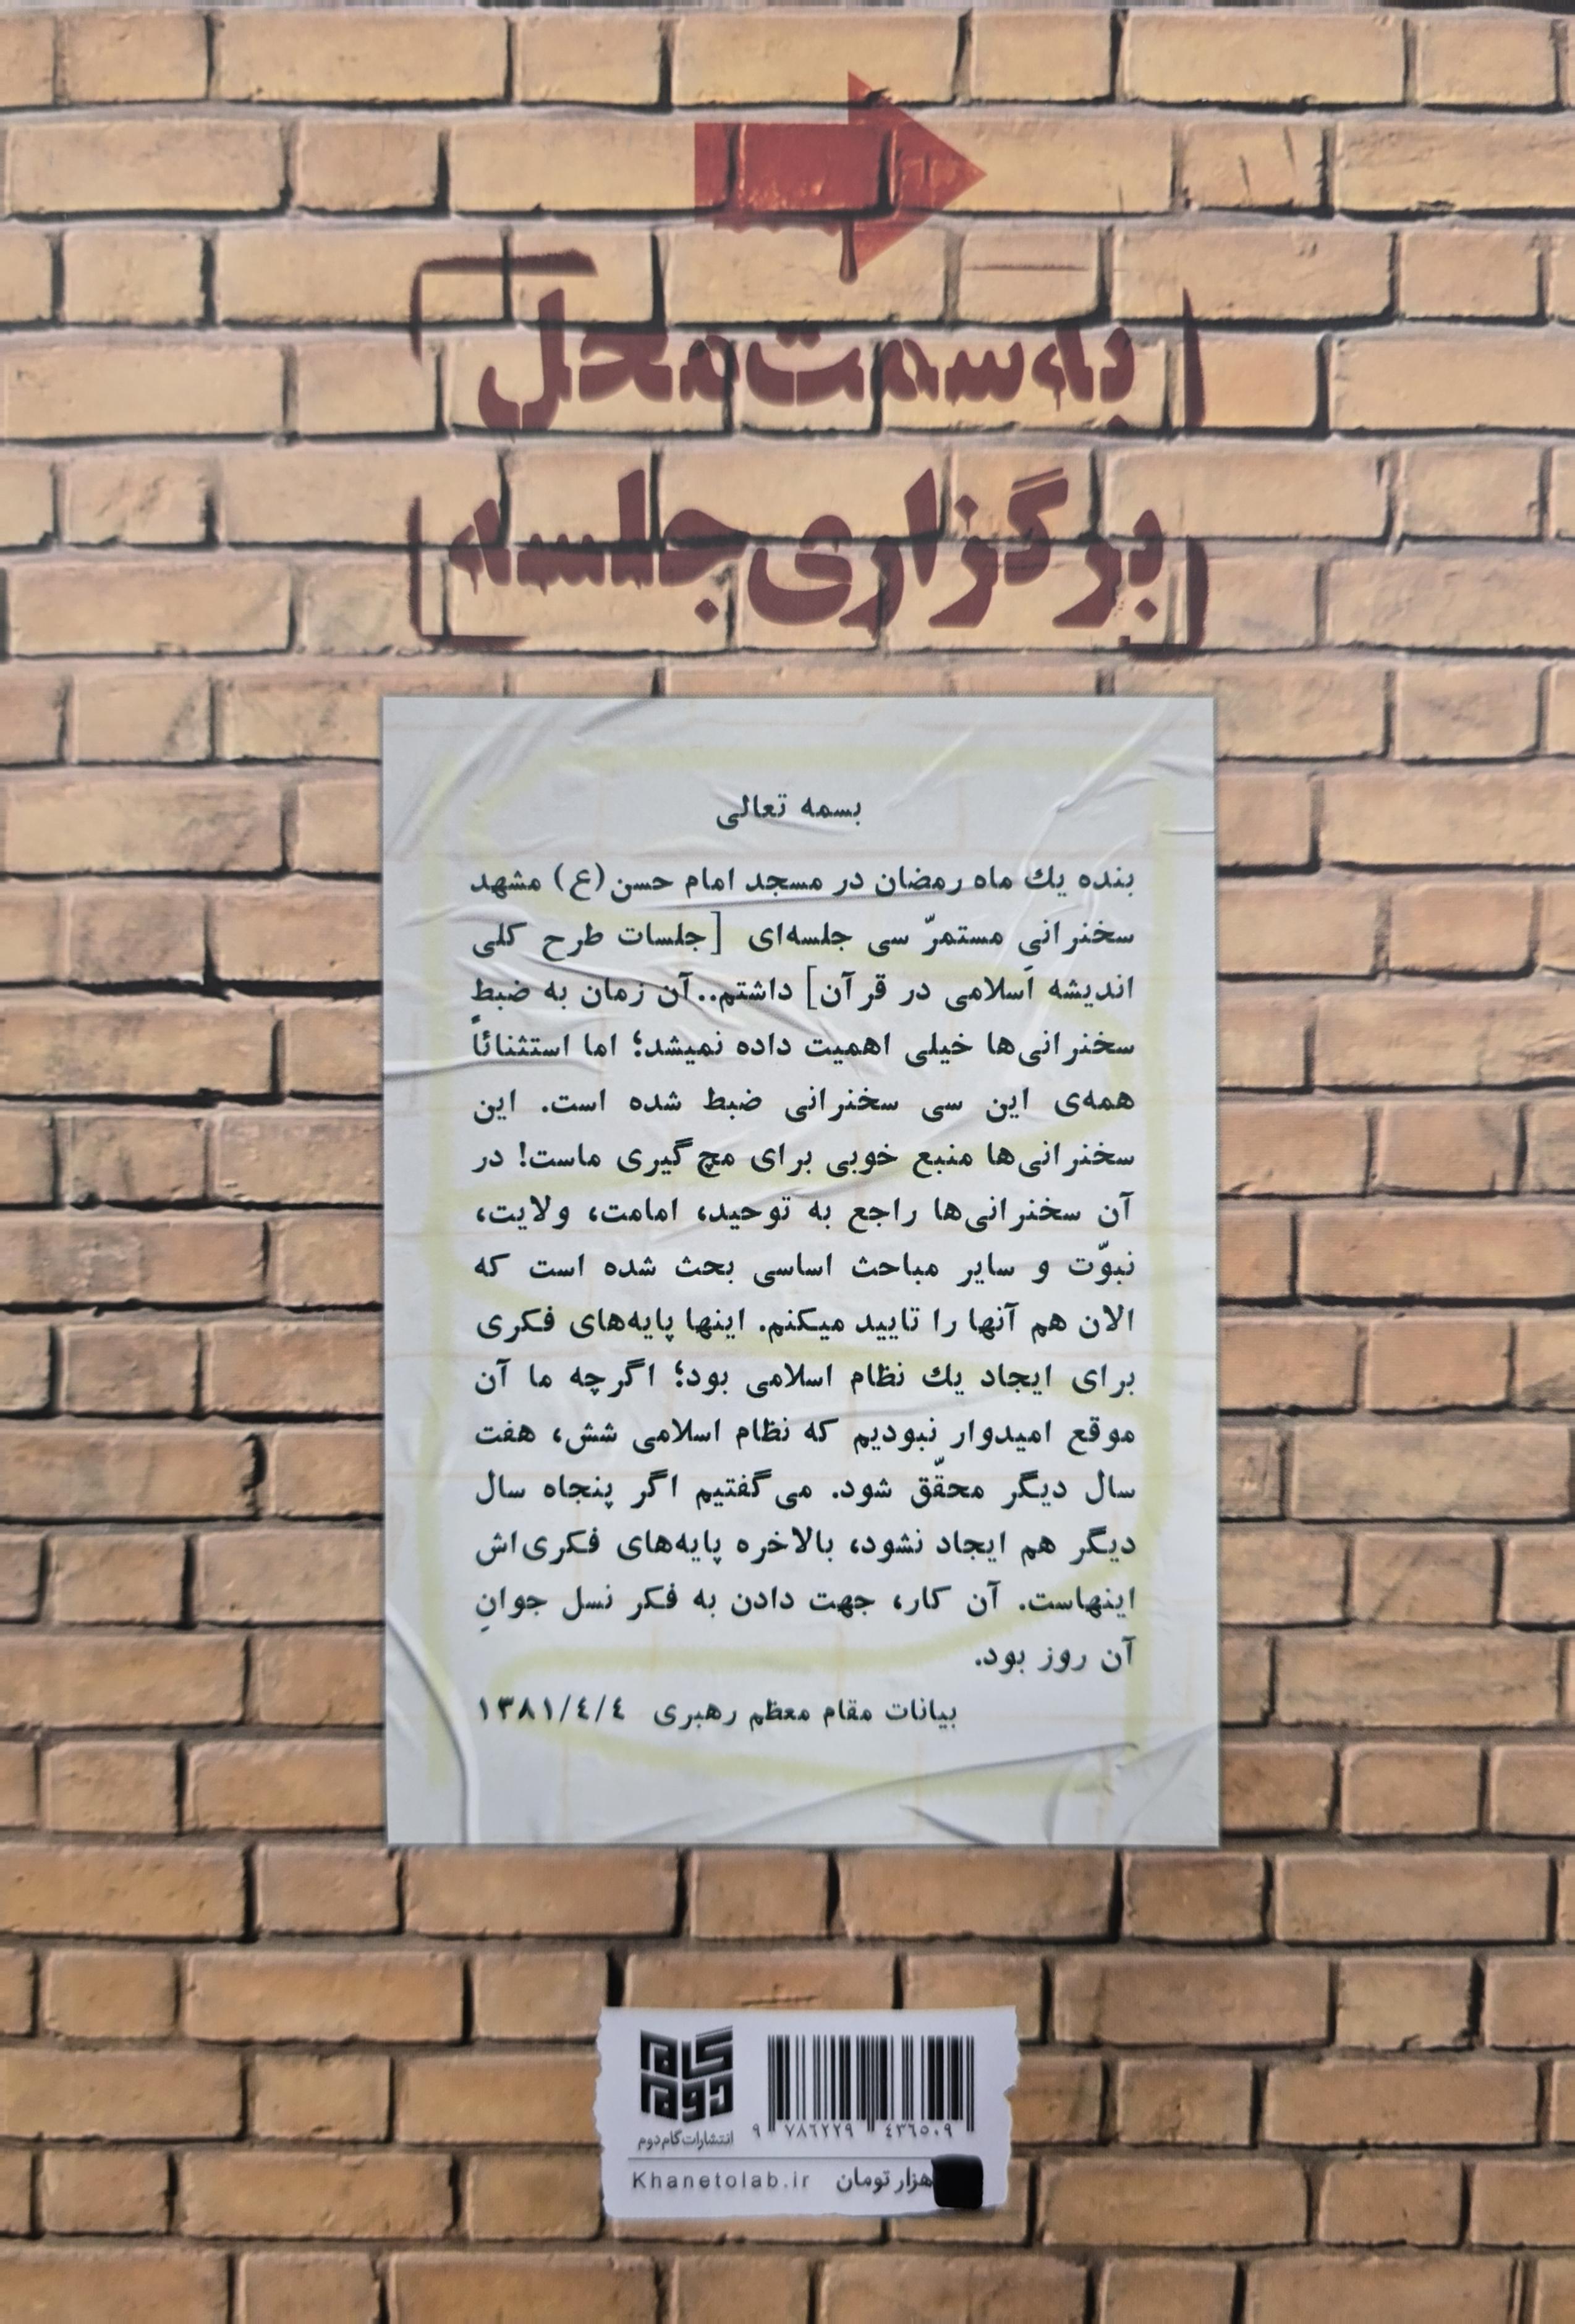 به سمت محل
برگزاری جلسه
بسمه تعالی
بنده یك ماه رمضان در مسجد امام حسن(ع) مشهد
سخنرانی مستمرّ سی جلسه‌ای [جلسات طرح کلی
اندیشه اسلامی در قرآن] داشتم..آن زمان به ضبط
سخنرانی‌ها خیلی اهمیت داده نمیشد؛ اما استثنائاً
همه‌ی این سی سخنرانی ضبط شده است. این
سخنرانی‌ها منبع خوبی برای مچ‌گیری ماست! در
آن سخنرانی‌ها راجع به توحید، امامت، ولایت،
نبوّت و سایر مباحث اساسی بحث شده است که
الان هم آنها را تایید میکنم. اینها پایه‌های فکری
برای ایجاد یك نظام اسلامی بود؛ اگرچه ما آن
موقع امیدوار نبودیم که نظام اسلامی شش، هفت
سال دیگر محقّق شود. می‌گفتیم اگر پنجاه سال
دیگر هم ایجاد نشود، بالاخره پایه‌های فکری‌اش
اینهاست. آن کار، جهت دادن به فکر نسل جوانِ
آن روز بود.
بیانات مقام معظم رهبری ۱۳۸۱/٤/٤
گام دوم
انتشارات گام دوم
۹ ۷۸٦۲۲۹ ٤۳٦٥۰۹
هزار تومان Khanetolab.ir